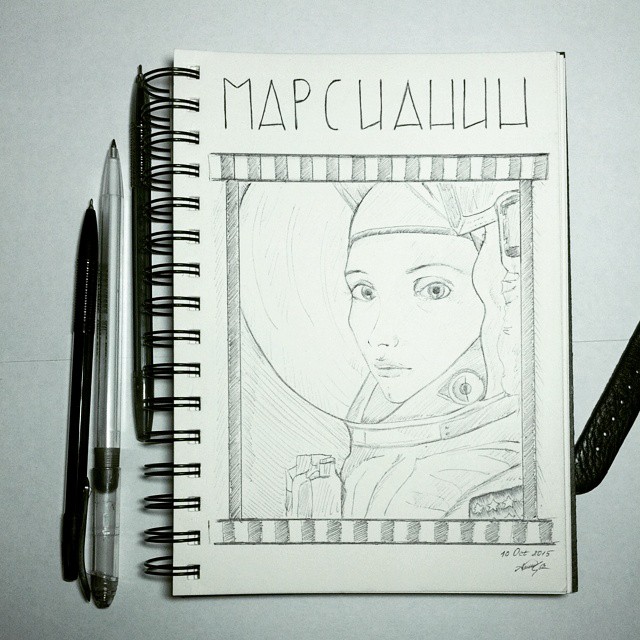 МАРСИАНИН
10 Oct 2015